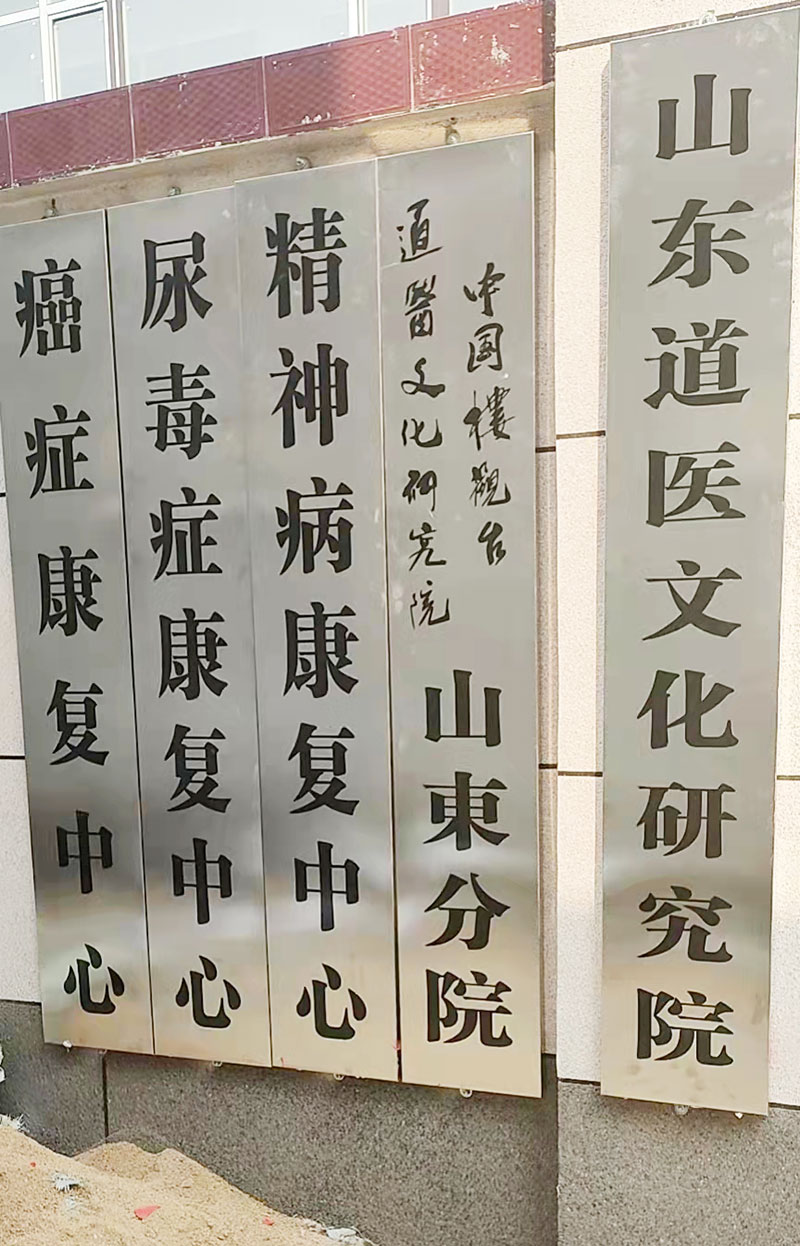 山东道医文化研究院
中国樓觀台
道醫文化研究院
山東分院
精神病康复中心
尿毒症康复中心
癌症康复中心